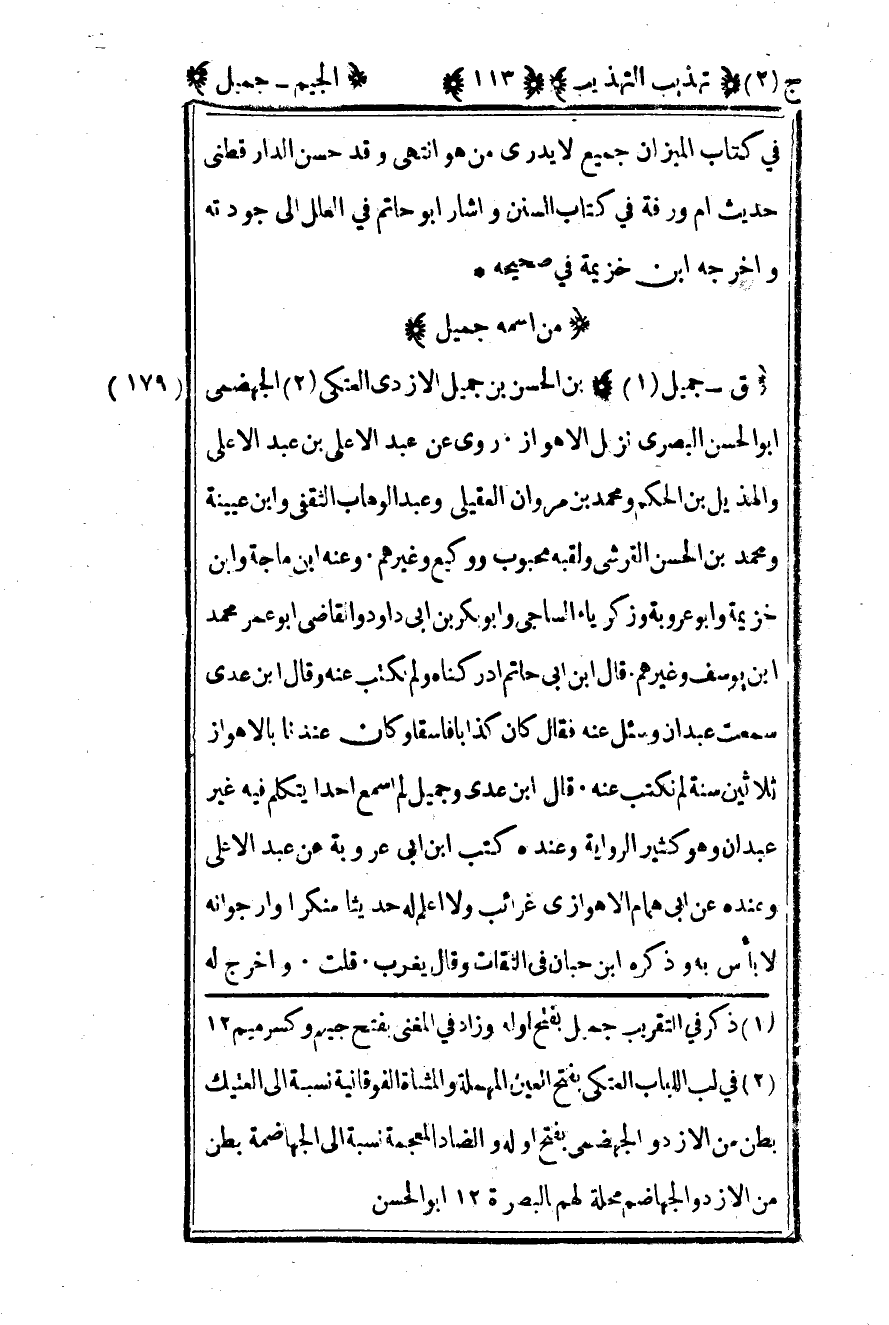 ج (٢) ﴿ تهذيب التهذيب ﴾ ﴿ ١١٣ ﴾ ﴿ الجيم ـ جميل ﴾
في كتاب الميزان جميع لا يدرى من هو انتهى و قد حسن الدارقطنى
حديث ام ورقة في كتاب السنن و اشار ابو حاتم في العلل الى جودته
و اخرجه ابن خزيمة في صحيحه *
﴿ من اسمه جميل ﴾
﴿ ق ـ جميل (١) ﴾ بن الحسن بن جميل الازدى العتكى (٢) الجهضمى (١٧٩)
ابو الحسن البصرى نزيل الاهواز ٠ روى عن عبد الاعلى بن عبد الاعلى
والهذيل بن الحكم و محمد بن مروان العقيلى وعبد الوهاب الثقفى وابن عيينة
ومحمد بن الحسن القرشى ولقبه محبوب ووكيع وغيرهم ٠ وعنه ابن ماجة وابن
خزيمة وابو عروبة وزكرياء الساجى وابو بكر بن ابى داود والقاضى ابو عمر محمد
ابن يوسف وغيرهم ٠ قال ابن ابى حاتم ادركناه ولم نكتب عنه وقال ابن عدى
سمعت عبدان وسئل عنه فقال كان كذابا فاسقا وكان عندنا بالاهواز
ثلاثين سنة لم نكتب عنه ٠ قال ابن عدى وجميل لم اسمع احدا يتكلم فيه غير
عبدان وهو كثير الرواية وعنده كتب ابن ابى عروبة عن عبد الاعلى
وعنده عن ابى همام الاهوازى غرائب ولا اعلم له حديثا منكرا وارجو انه
لا بأس به و ذكره ابن حبان فى الثقات وقال يغرب ٠ قلت ٠ و اخرج له
(١) ذكر في التقريب جميل بفتح اوله وزاد في المغنى بفتح جيم وكسر ميم ١٢
(٢) في لب اللباب العتكى بفتح العين المهملة والمثناة الفوقانية نسبة الى العتيك
بطن من الازد و الجهضمى بفتح اوله و الضاد المعجمة نسبة الى الجهاضمة بطن
من الازد والجهاضم محلة لهم البصرة ١٢ ابو الحسن